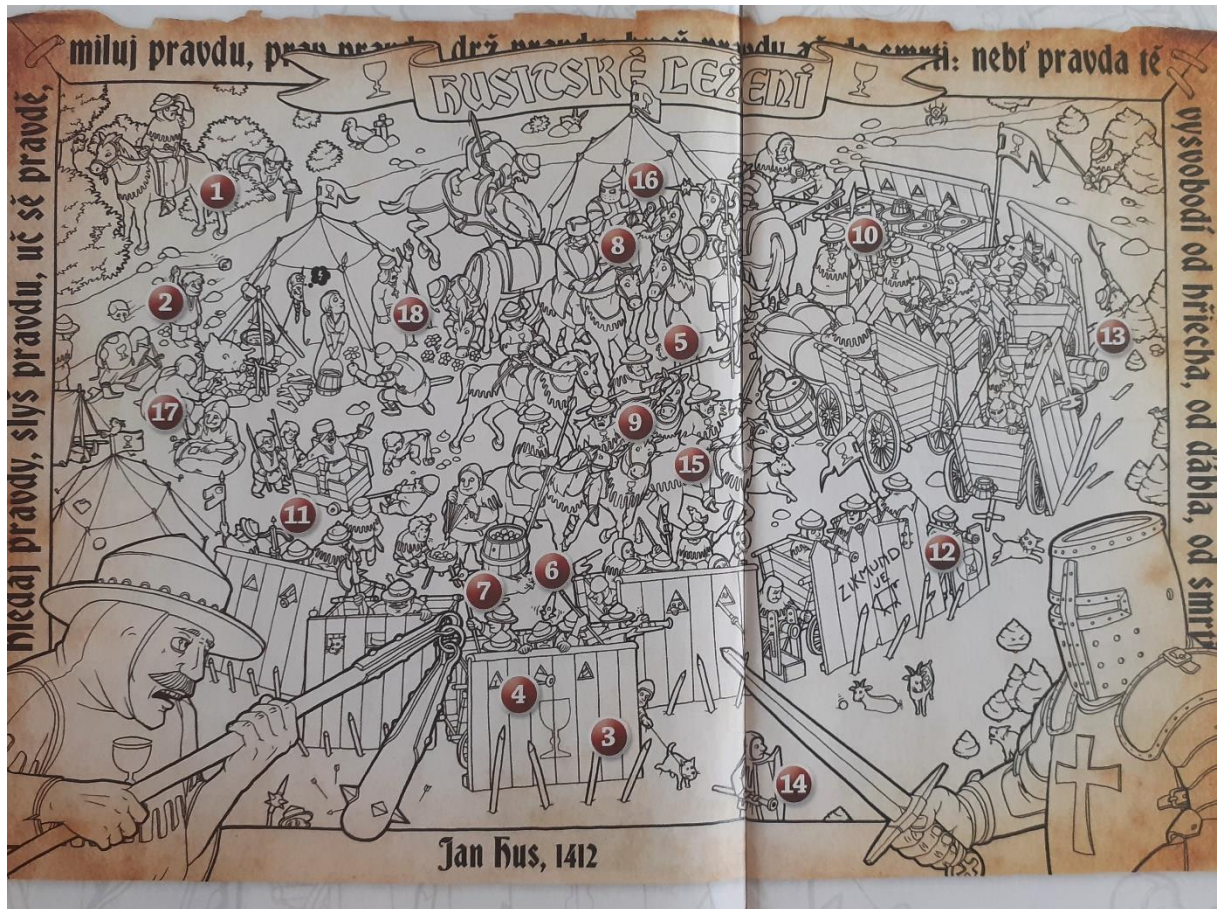 Hledaj pravdy, slyš pravdu, uč sě pravdě,
miluj pravdu, prav pravdu, drž pravdu, braň pravdu až do smrti: nebť pravda tě
vysvobodí od hřiecha, od dábla, od smrti
HUSITSKÉ LEŽENÍ
1
16
8
10
2
18
5
13
17
9
15
11
12
6
7
ZIKMUND
JE
4
3
14
Jan Hus, 1412